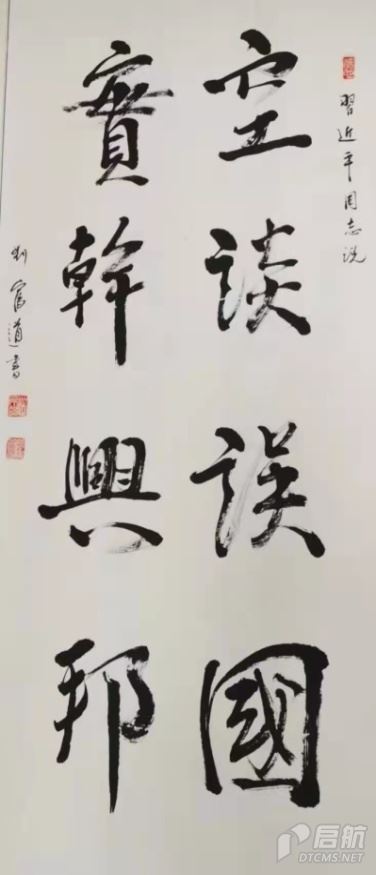 習近平同志说
空談誤國
實幹興邦
刘富道書
启航
DTCMS.NET